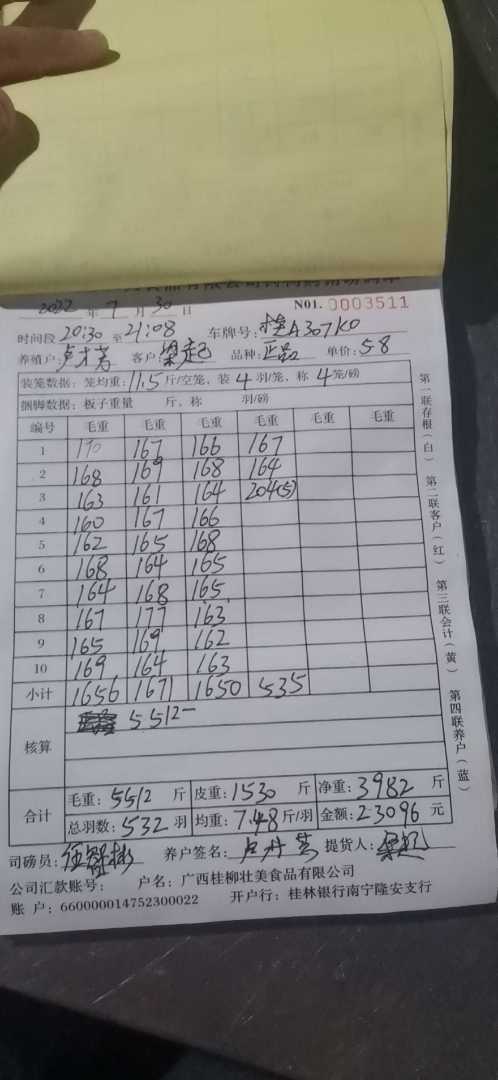 2022 年 7 月 30 日 N01. 0003511
时间段 20:30 至 21:08 车牌号: 桂A307K0
养殖户: 卢才芳 客户: 梁起 品种: 正品 单价: 5.8
装笼数据: 笼均重: 11.5 斤/空笼、装 4 羽/笼、称 4 笼/磅
捆脚数据: 板子重量 斤、称 羽/磅
编号 毛重 毛重 毛重 毛重 毛重 毛重
1 170 167 166 167
2 168 169 168 164
3 163 161 164 204(5)
4 160 167 166
5 162 165 168
6 168 164 165
7 164 168 165
8 167 177 163
9 165 169 162
10 169 164 163
小计 1656 1671 1650 535
核算 5512
合计 毛重: 5512 斤 皮重: 1530 斤 净重: 3982 斤
总羽数: 532 羽 均重: 7.48 斤/羽 金额: 23096 元
司磅员: 养户签名: 提货人: 梁起
公司汇款账号: 户名: 广西桂柳壮美食品有限公司
账 户: 660000014752300022 开户行: 桂林银行南宁隆安支行
第一联存根(白) 第二联客户(红) 第三联会计(黄) 第四联养户(蓝)